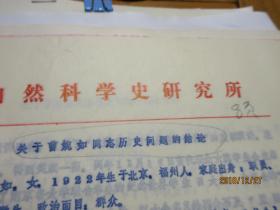 自然科学史研究所
83
关于曹婉如同志历史问题的结论
如,女,1922年生于北京,福州人,家庭出身:职员,
政治面目:群众。
2018/12/27